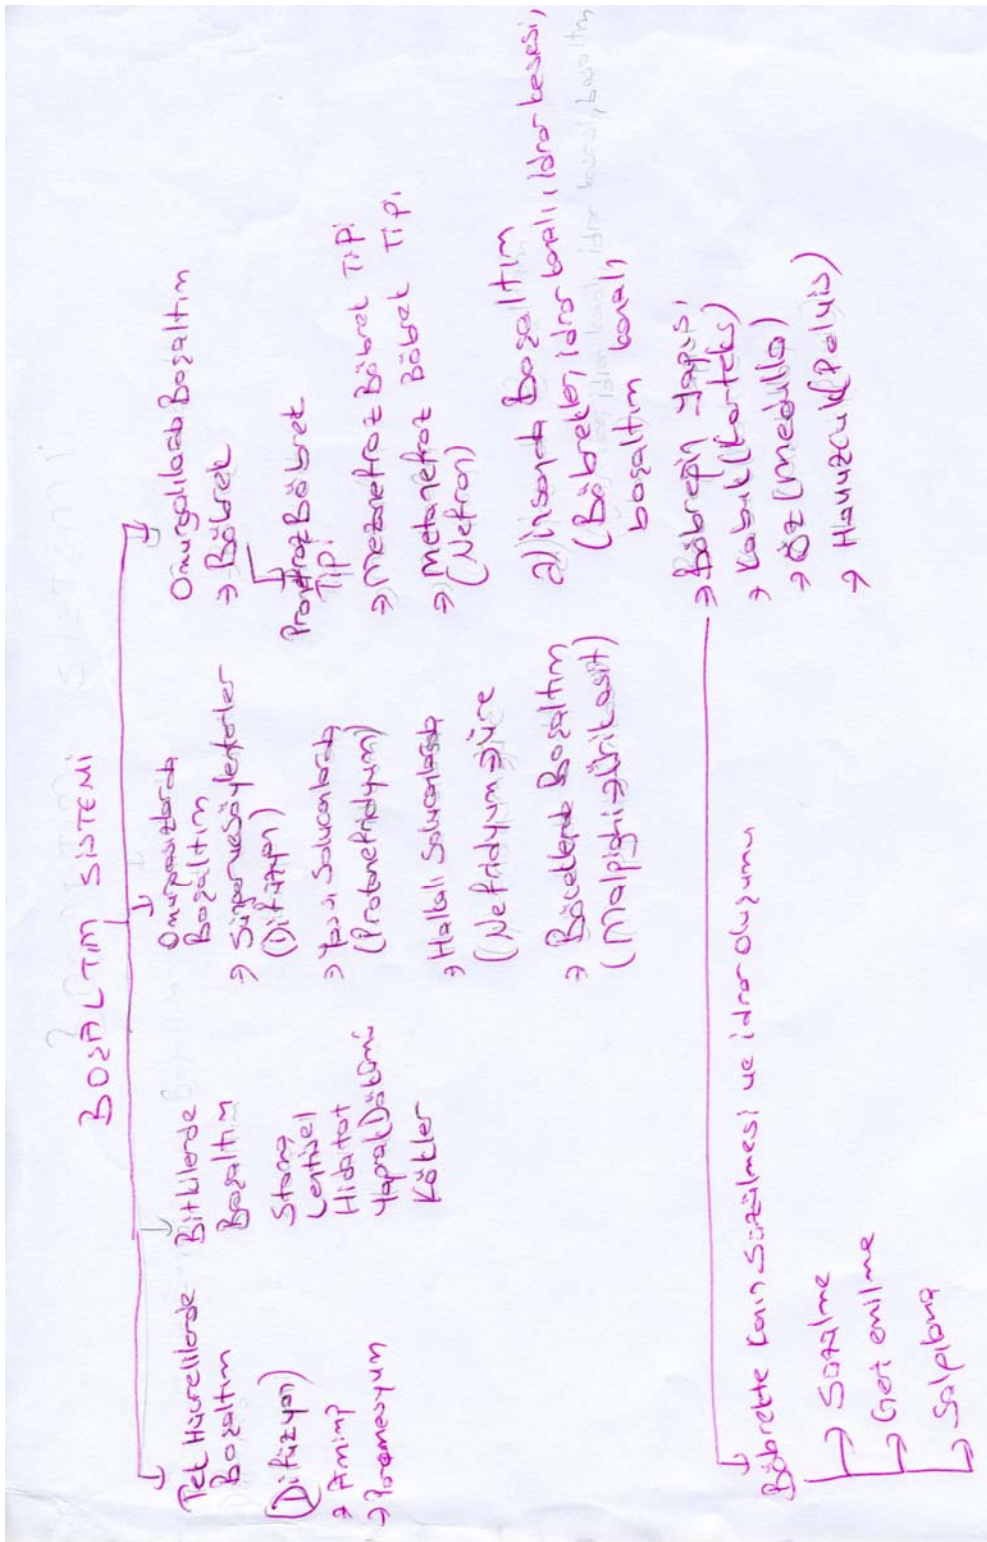 BOŞALTIM SİSTEMİ
Tek Hücrelilerde
Boşaltım
(Difüzyon)
→ Amimp
→ Paramesyum
Bitkilerde
Boşaltım
Stoma
Lentisel
Hidatot
Yaprak Dökümü
Kökler
Omurgasızlarda
Boşaltım
→ Sünger ve Sölenterler
(Difüzyon)
→ Yassı Solucanlarda
(Protonefridyum)
→ Halkalı Solucanlarda
(Nefridyum → Üre
→ Böceklerde Boşaltım
(Malpighi → Ürik asit)
Omurgalılarda Boşaltım
→ Böbrek
Pronefroz Böbrek
Tipi
→ Mezonefroz Böbrek Tipi
→ Metanefroz Böbrek Tipi
(Nefron)
a) İnsanda Boşaltım
(Böbrekler, idrar kanalı, idrar kesesi,
boşaltım kanalı)
→ Böbreğin Yapısı
→ Kabuk (Korteks)
→ Öz (Medulla)
→ Havuzcuk (Pelvis)
Böbrekte Kanın Süzülmesi ve idrar oluşumu
→ Süzülme
→ Geri emilme
→ Salgılama